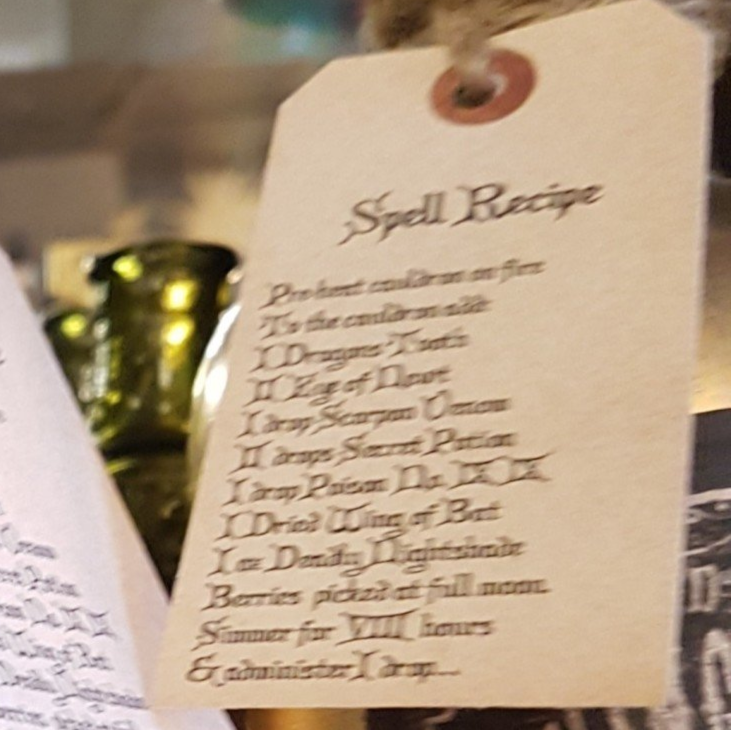 Spell Recipe
Pre-heat cauldron on fire
To the cauldron add:
I Dragons Tooth
II Eye of Newt
I drop Scorpon Venom
II drops Secret Potion
I drop Poison No. IX IX
I Dried Wing of Bat
I oz Deadly Nightshade
Berries picked at full moon.
Simmer for VIII hours
& administer I drop...